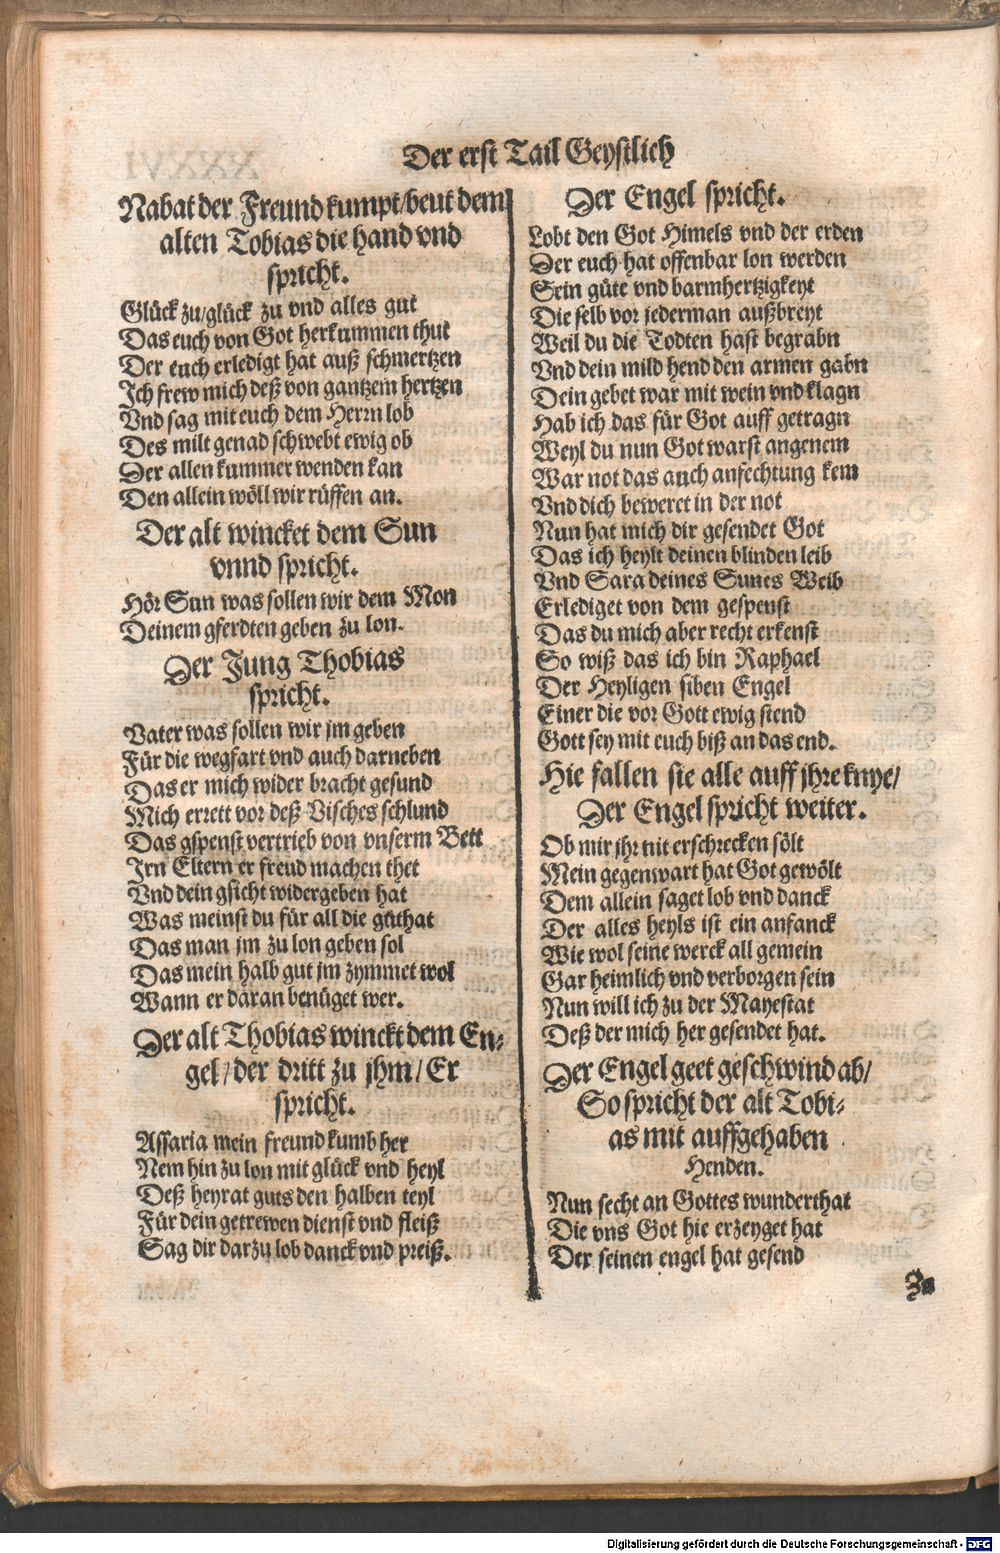 Der erst Tail Geystlich
Nabat der Freund kumpt/beut dem
alten Tobias die hand vnd
spricht.
Glück zu/glück zu vnd alles gut
Das euch von Got herkummen thut
Der euch erledigt hat auß schmertzen
Ich frew mich deß von gantzem hertzen
Vnd sag mit euch dem Herrn lob
Des milt genad schwebt ewig ob
Der allen kummer wenden kan
Den allein wöll wir rüffen an.
Der alt wincket dem Sun
vnnd spricht.
Hör Sun was sollen wir dem Mon
Deinem gferdten geben zu lon.
Der Jung Thobias
spricht.
Vater was sollen wir jm geben
Für die wegfart vnd auch darneben
Das er mich wider bracht gesund
Mich errett vor deß Visches schlund
Das gspenst vertrieb von vnserm Bett
Irn Eltern er freud machen thet
Vnd dein gsicht widergeben hat
Was meinst du für all die gůthat
Das man jm zu lon geben sol
Das mein halb gut jm zymmet wol
Wann er daran benüget wer.
Der alt Thobias winckt dem En-
gel/der dritt zu jhm/Er
spricht.
Assaria mein freund kumb her
Nem hin zu lon mit glück vnd heyl
Deß heyrat guts den halben teyl
Für dein getrewen dienst vnd fleiß
Sag dir darzu lob danck vnd preiß.
Der Engel spricht.
Lobt den Got Himels vnd der erden
Der euch hat offenbar lon werden
Sein güte vnd barmhertzigkeyt
Die selb vor jederman außbreyt
Weil du die Todten hast begrabn
Vnd dein mild hend den armen gabn
Dein gebet war mit wein vnd klagn
Hab ich das für Got auff getragn
Weyl du nun Got warst angenem
War not das auch anfechtung kem
Vnd dich beweret in der not
Nun hat mich dir gesendet Got
Das ich heylt deinen blinden leib
Vnd Sara deines Sunes Weib
Erlediget von dem gespenst
Das du mich aber recht erkenst
So wiß das ich bin Raphael
Der Heyligen siben Engel
Einer die vor Gott ewig stend
Gott sey mit euch biß an das end.
Hie fallen sie alle auff jhre knye/
Der Engel spricht weiter.
Ob mir jhr nit erschrecken sölt
Mein gegenwart hat Got gewölt
Dem allein saget lob vnd danck
Der alles heyls ist ein anfanck
Wie wol seine werck all gemein
Gar heimlich vnd verborgen sein
Nun will ich zu der Mayestat
Deß der mich her gesendet hat.
Der Engel geet geschwind ab/
So spricht der alt Tobi-
as mit auffgehaben
Henden.
Nun secht an Gottes wunderthat
Die vns Got hie erzeyget hat
Der seinen engel hat gesend
Digitalisierung gefördert durch die Deutsche Forschungsgemeinschaft - DFG